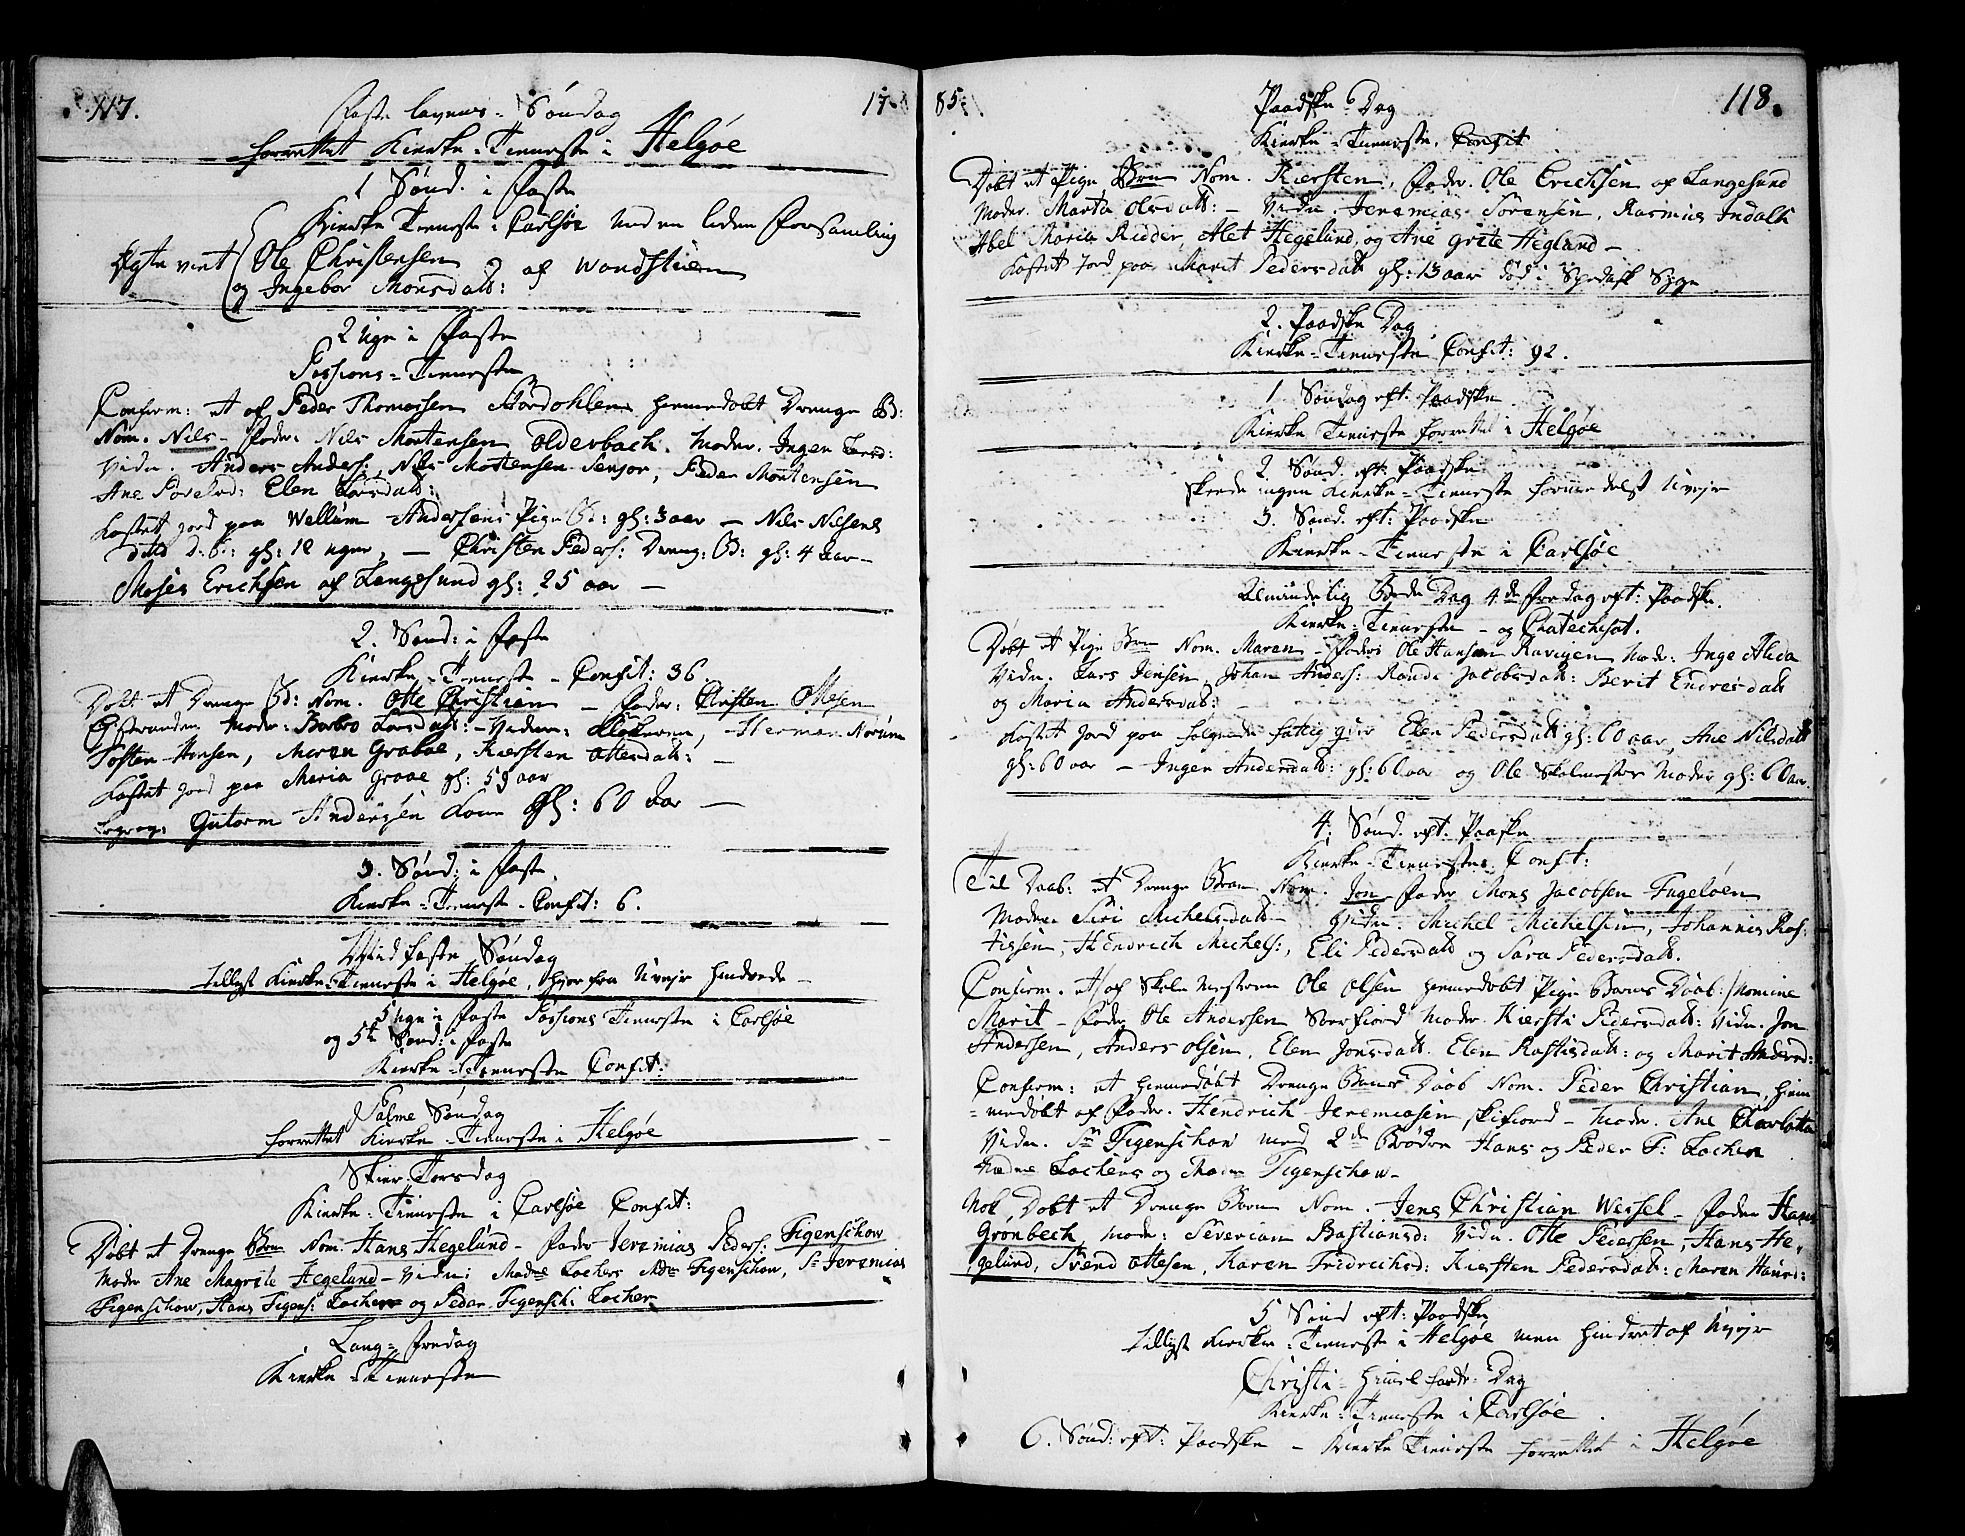 117.
17
Faste lavens - Søndag
forrettet Kierke-Tieneste i Helgøe
1 Sønd. i Faste
Kierke Tieneste i Carlsøe ved en liden forsamling
Ægte viet Ole Christensen
og Ingebor Monsdatt: af Wandstuen
2 Uge i Faste
Passions-Tieneste
Confirm: et af Peder Thomassen Skordahlen hiemedøbt Drenge B:
Nom. Nils - Fader Nils Mortensen Olderbach. Moder. Inger
Vidn. Anders Anders:, Nils Mortensen Senjor, Peder Mortensen
Ane Elen Larsdatt:
Kastet Jord paa Wellum Andersens Pige B: gl: 3 aar - Nils Nilsens
D: B: gl: 12 uger, - Christen Peders: Dreng: B: gl: 4 Aar -
Moses Erichsen af Langesund gl: 25 aar -
2. Sønd: i Faste
Kierke-Tieneste - Confit: 36
Døbt et Drenge B: Nom. Otte Christian - Fader: Christen Ottesen
Moder: Barbro Larsdatt: - Vidne: Klokeren, Herman Norum
Tosten Hansen, Maren Graboe, Kiersten Ottesdatt: -
Kastet Jord paa Maria Graae gl: 59 aar
Gutorm Andersen Gl: 60 Aar -
3. Sønd: i Faste.
Kierke-Tieneste - Confit: 6.
Mid faste Søndag
Tillyst Kierke-Tieneste i Helgøe, hvorfra Uvejr hindrede -
5 Uge i Faste Passions Tieneste i Carlsøe
og 5te Sønd: i Faste
Kierke-Tieneste Confit:
Palme Søndag
forrettet Kierke-Tieneste i Helgøe
Skier Torsdag
Kierke-Tieneste i Carlsøe Confit:
Døbt et Drenge Barn Nom. Hans Hegelund - Fader Jeremias Peders: Figenschow
Moder Ane Magrete Hegelund - Vidn: Madme Lochers Mdme Figenschow, Sr Jeremias
Figenschow, Hans Figens: Locher og Peder Figensch: Locher
Lang-Fredag
Kierke-Tieneste
85
118.
Paadske Dag
Kierke-Tieneste. Confit
Døbt et Pige Barn Nom. Kiersten, Fader. Ole Erichsen af Langesund
Moder. Marta Olsdatt: - Vidn. Jeremias Sørensen, Rasmus Indalh
Abel Maria Ridder, Alet Hegelund, og Ane Grete Heglund -
Kastet Jord paa Marit Pedersdatt gl: 13 aar død i Spedalsk Syge
2. Paadske Dag
Kierke-Tieneste Confit: 92.
1 Søndag eft: Paadske
Kierke Tieneste forrettet i Helgøe
2. Sønd. eft: Paadske
skeede ingen Kierke-Tieneste formedelst Uvejr
3. Sønd. eft: Paadske
Kierke-Tieneste i Carlsøe
Almindelig Bede Dag 4de Fredag eft: Paadske.
Kierke-Tieneste - og Chatechisat.
Døbt et Pige Barn Nom. Maren - Fader Ole Hansen Ravigen Moder: Inge Alida
Vidn. Lars Jensen, Johan Anders: Randi Jacobsdatt: Berit Endresdatt
og Maria Andersdatt: -
Kastet Jord paa følgende fattig Elen Pedersdatt gl: 60 aar, Ane Nilsdatt
gl: 60 aar - Inger Andersdatt: gl: 60 aar og Ole Skolmester Moder gl: 60 aar.
4. Sønd. eft. Paaske
Kierke-Tieneste. Confit:
Til Daab: et Drenge Barn Nom. Jon Fader Mons Jacobsen Fugeløen
Moder Siri Michelsdatt - Vidn. Michel Michelsen, Johannis Ras-
tissen, Hendrich Michels:, Eli Pedersdatt og Sara Pedersdatt.
Confirm. et af Skole Mesteren Ole Olsen hiemedøbt Pige Barns Daab: / Nomine
Marit - Fader Ole Andersen Sorfiord Moder. Kiersti Pedersdatt: Vidn. Jon
Andersen, Anders Olsen, Elen Jonsdatt. Elen Rastisdatt: og Marit Andersd:
Confirm: et hiemedøbt Drenge Barns Daab Nom. Peder Christian, hiem-
medøbt af Fader. Hendrich Jeremiasen Skifiord - Moder. Ane Charlotta
Vidn. Sr Figenschow med 2de Brødre Hans og Peder F: Locher
Madme Lochers og Madme Figenschow -
Nok Døbt et Drenge Barn Nom. Jens Christian Wessel - Fader Hans
Grønbech, Mode: Severian Bastiansd: Vidn. Otte Pedersen, Hans He-
gelund, Svend Ottesen, Karen Fridrichsd: Kiersten Pedersdatt: Maren Hansd:
5 Sønd eft: Paadske
Tillyst Kierke-Tieneste i Helgøe men hindret af Uvejr
Christi Himmelfarts: Dag
Kierke-Tieneste i Carlsøe
6. Sønd: eft: Paadske - Kierke Tieneste forrettet i Helgøe